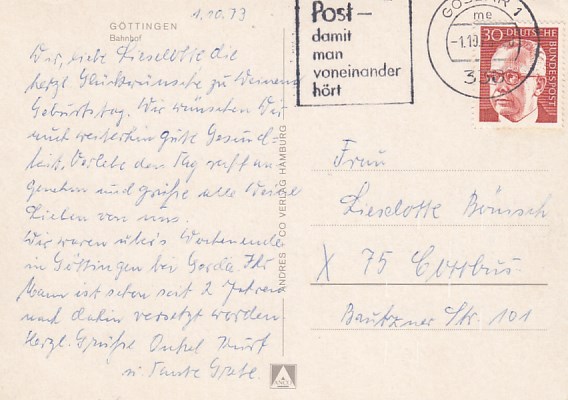 1.10.73
GÖTTINGEN
Bahnhof
Dir, liebe Lieselotte die
herzl. Glückwünsche zu Deinem
Geburtstag. Wir wünschen Dir
auch weiterhin gute Gesund-
heit. Verlebe den Tag recht an-
genehm und grüße alle Deine
Lieben von uns.
Wir waren über's Wochenende
in Göttingen bei Gerda. Ihr
Mann ist schon seit 2 Jahren
nach dahin versetzt worden.
Herzl. Grüße Onkel Kurt
u. Tante Grete.
ANDRES CO VERLAG HAMBURG
Post-
damit
man
voneinander
hört
GOSLAR 1
me
-1.10.
30 DEUTSCHE
BUNDESPOST
Frau
Lieselotte
X 75 Cottbus
Bautzner Str. 101